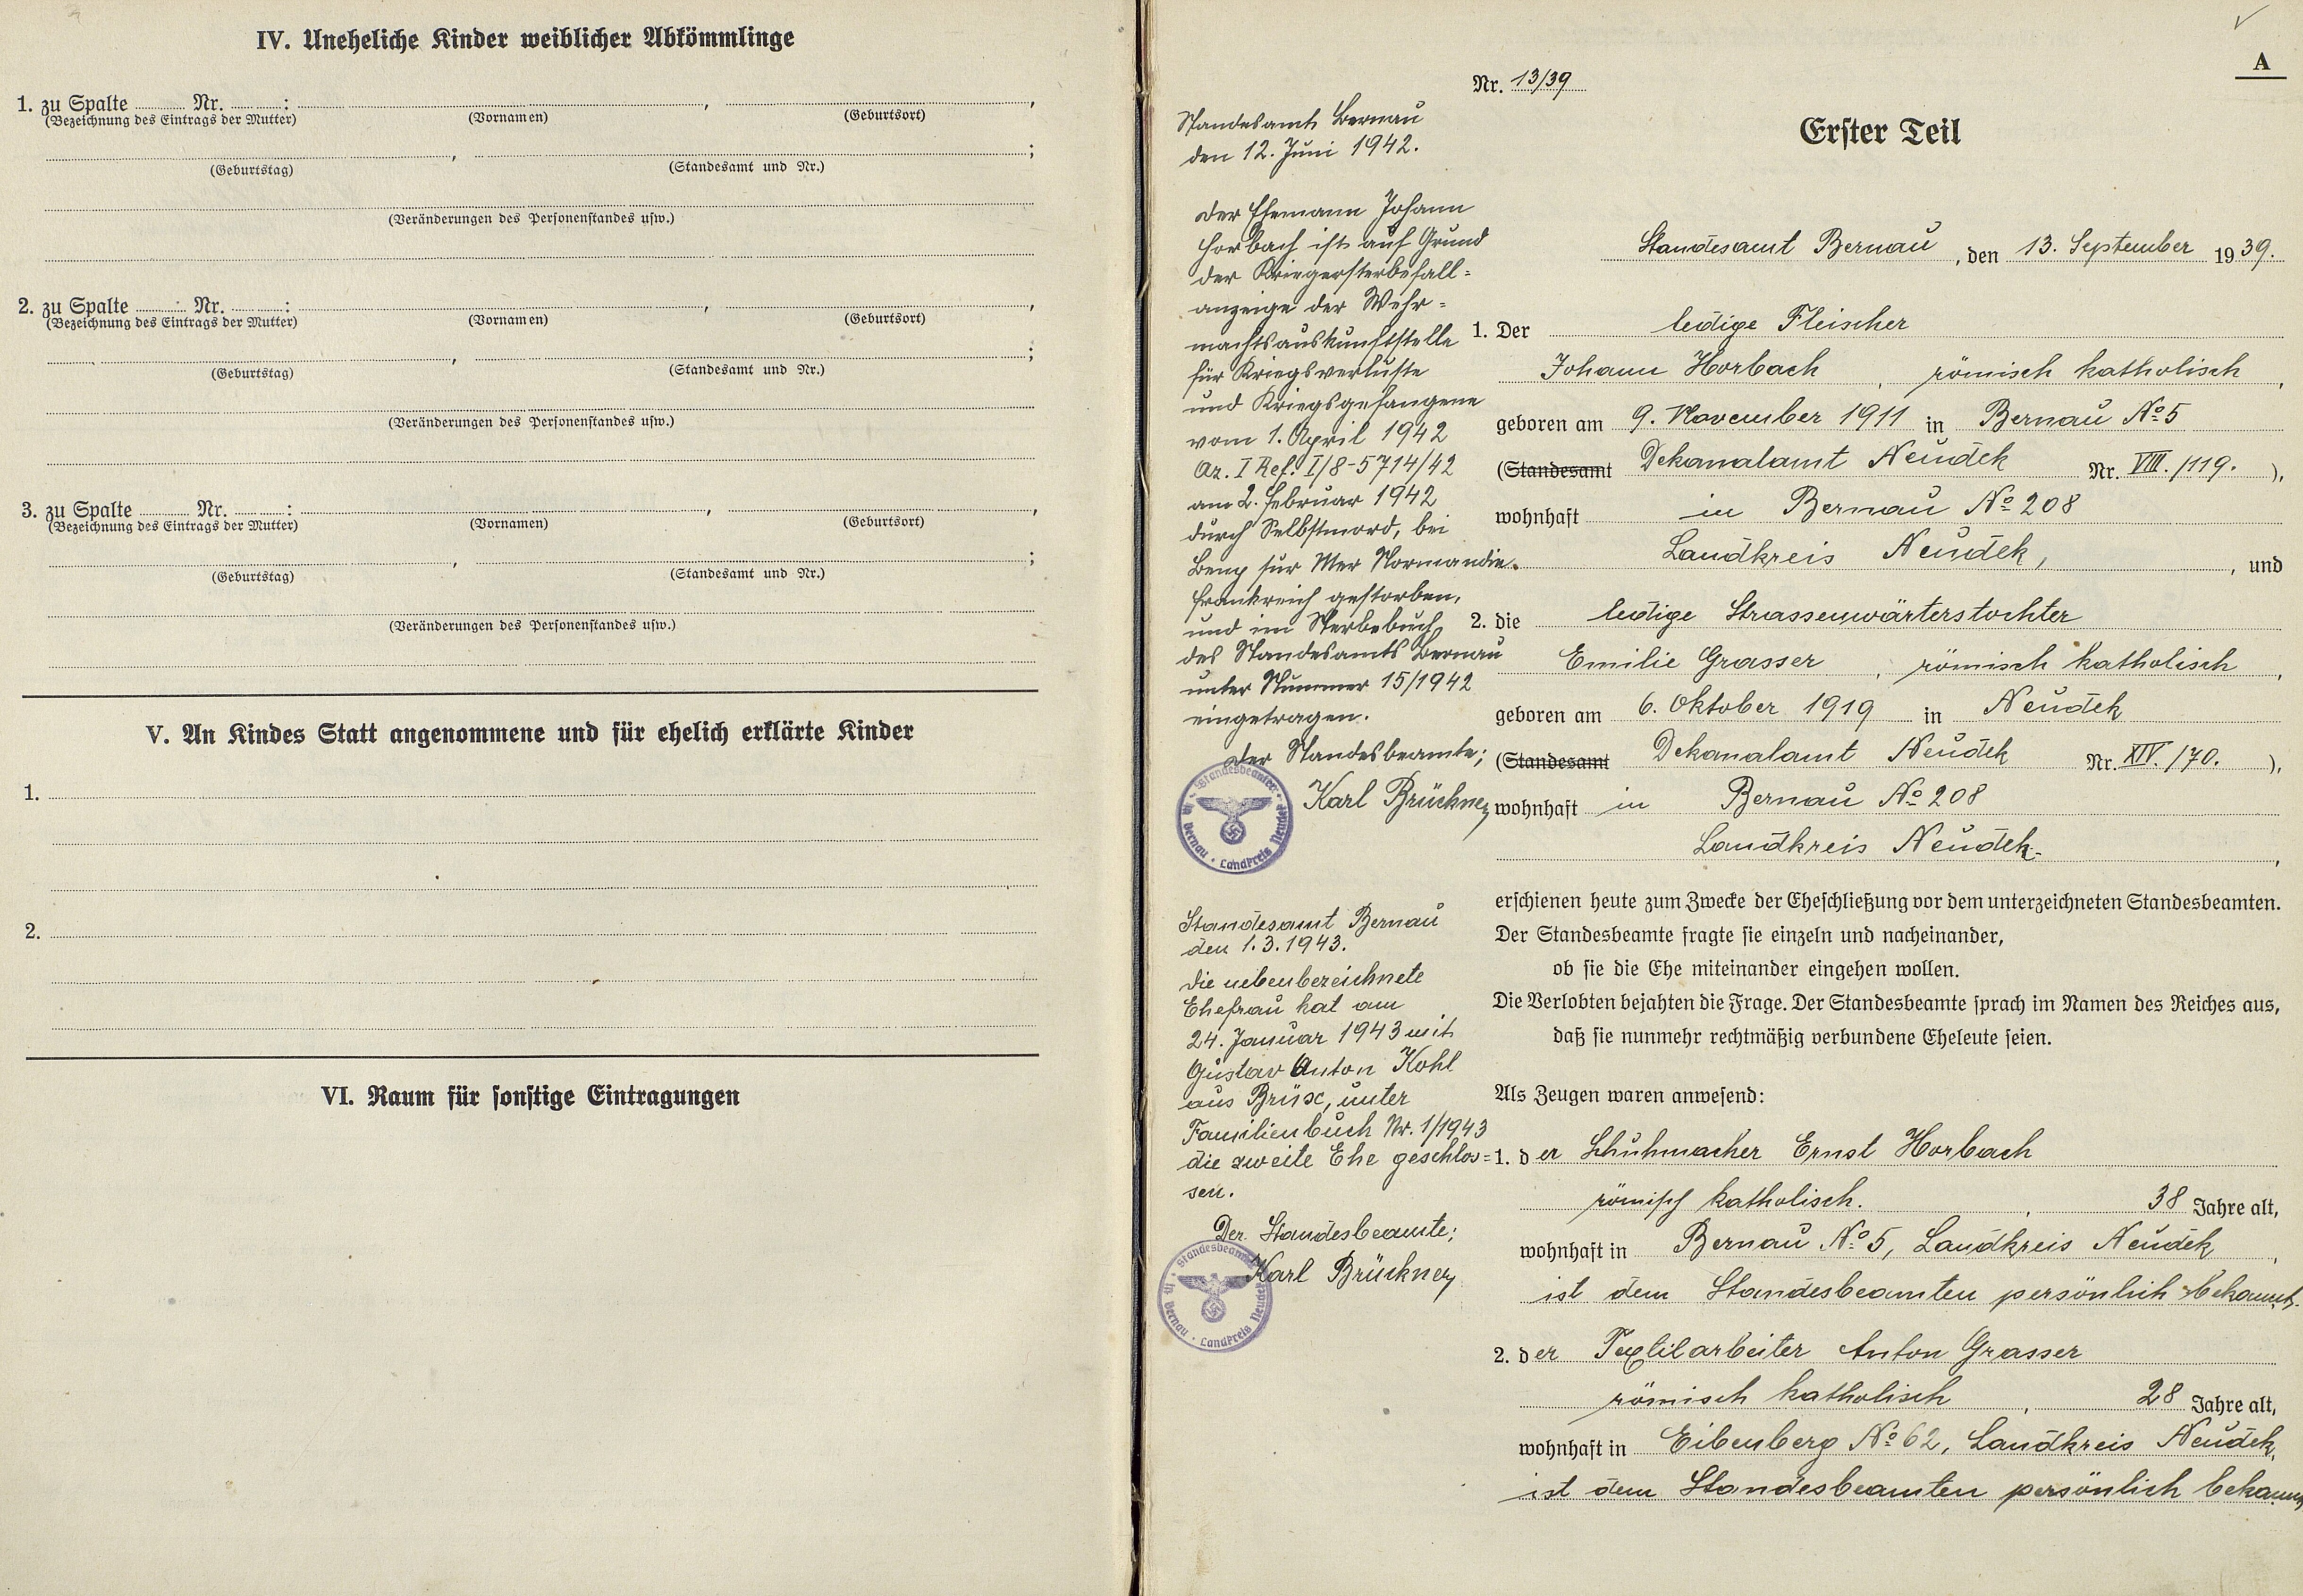 IV. Uneheliche Kinder weiblicher Abkömmlinge
1. zu Spalte Nr. : , ,
(Bezeichnung des Eintrags der Mutter) (Vornamen) (Geburtsort)
, ;
(Geburtstag) (Standesamt und Nr.)
(Veränderungen des Personenstandes usw.)
2. zu Spalte Nr. : , ,
(Bezeichnung des Eintrags der Mutter) (Vornamen) (Geburtsort)
, ;
(Geburtstag) (Standesamt und Nr.)
(Veränderungen des Personenstandes usw.)
3. zu Spalte Nr. : , ,
(Bezeichnung des Eintrags der Mutter) (Vornamen) (Geburtsort)
, ;
(Geburtstag) (Standesamt und Nr.)
(Veränderungen des Personenstandes usw.)
V. An Kindes Statt angenommene und für ehelich erklärte Kinder
1.
2.
VI. Raum für sonstige Eintragungen
A
Nr. 13/39
Erster Teil
Standesamt Bernau
den 12. Juni 1942.
Der Ehemann Johann
Horbach ist auf Grund
der Kriegersterbefall=
anzeige der Wehr=
machtsauskunftstelle
für Kriegsverluste
und Kriegsgefangene
vom 1. April 1942
Az. I Ref. I/8-5714/42
am 2. Februar 1942
durch Selbstmord, bei
Beny sur Mer Normandie.
Frankreich gestorben,
und im Sterbebuch
des Standesamts Bernau
unter Nummer 15/1942
eingetragen.
Der Standesbeamte;
Karl Brückner
Standesbeamter in Bernau · Landkreis Neudek
Standesamt Bernau
den 1.3.1943.
Die nebenbezeichnete
Ehefrau hat am
24. Januar 1943 mit
Gustav Anton Kohl
aus Brüx, unter
Familienbuch Nr. 1/1943
die zweite Ehe geschlos=
sen.
Der Standesbeamte;
Karl Brückner
Standesbeamter in Bernau · Landkreis Neudek
Standesamt Bernau, den 13. September 1939.
1. Der ledige Fleischer
Johann Horbach, römisch katholisch,
geboren am 9. November 1911 in Bernau No 5
(Standesamt Dekanalamt Neudek Nr. VIII./119. ),
wohnhaft in Bernau No 208
Landkreis Neudek, , und
2. die ledige Strassenwärterstochter
Emilie Grasser, römisch katholisch,
geboren am 6. Oktober 1919 in Neudek
(Standesamt Dekanalamt Neudek Nr. XIV./70. ),
wohnhaft in Bernau No 208
Landkreis Neudek.,
erschienen heute zum Zwecke der Eheschließung vor dem unterzeichneten Standesbeamten.
Der Standesbeamte fragte sie einzeln und nacheinander,
ob sie die Ehe miteinander eingehen wollen.
Die Verlobten bejahten die Frage. Der Standesbeamte sprach im Namen des Reiches aus,
daß sie nunmehr rechtmäßig verbundene Eheleute seien.
Als Zeugen waren anwesend:
1. der Schuhmacher Ernst Horbach
römisch katholisch. , 38 Jahre alt,
wohnhaft in Bernau No 5, Landkreis Neudek,
ist dem Standesbeamten persönlich bekannt.
2. der Textilarbeiter Anton Grasser
römisch katholisch, 28 Jahre alt,
wohnhaft in Eibenberg No 62, Landkreis Neudek,
ist dem Standesbeamten persönlich bekannt